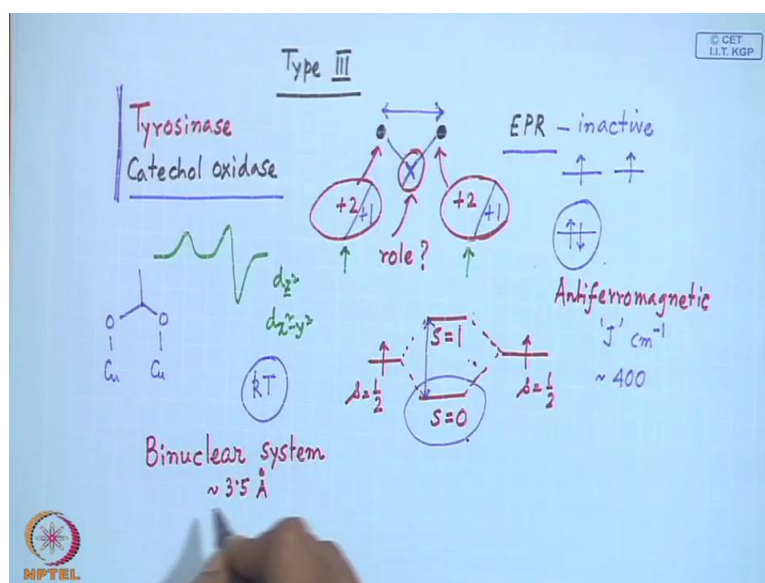 © CET
I.I.T. KGP
Type III
Tyrosinase
Catechol oxidase
EPR - inactive
X
+2/+1
+2/+1
role?
dz²
dx²-y²
O O
Cu Cu
kT
S=1
s=1/2
s=1/2
S=0
Antiferromagnetic
'J' cm⁻¹
~ 400
Binuclear system
~ 3.5 Å
NPTEL